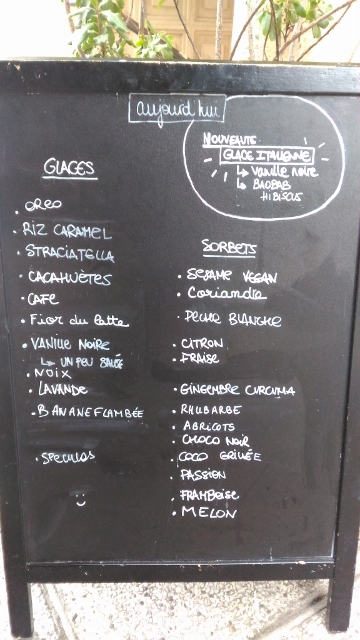 aujourd'hui
NOUVEAUTE
GLACE ITALIENNE
↳ Vanille noire
↳ BAOBAB
HIBISCUS
GLACES
. OREO
. RIZ CARAMEL
. STRACIATELLA
. CACAHUÈTES
. CAFE
. Fior du latte
. VANILLE NOIRE
↳ UN PEU SALÉE
. NOIX
. LAVANDE
. BANANE FLAMBÉE
. SPECULOS
SORBETS
. SESAME VEGAN
. Coriandre
. PECHE BLANCHE
. CITRON
. FRAISE
. GINGEMBRE CURCUMA
. RHUBARBE
. ABRICOTS
. CHOCO NOIR
. COCO GRILLÉE
. PASSION
. FRAMBOISE
. MELON